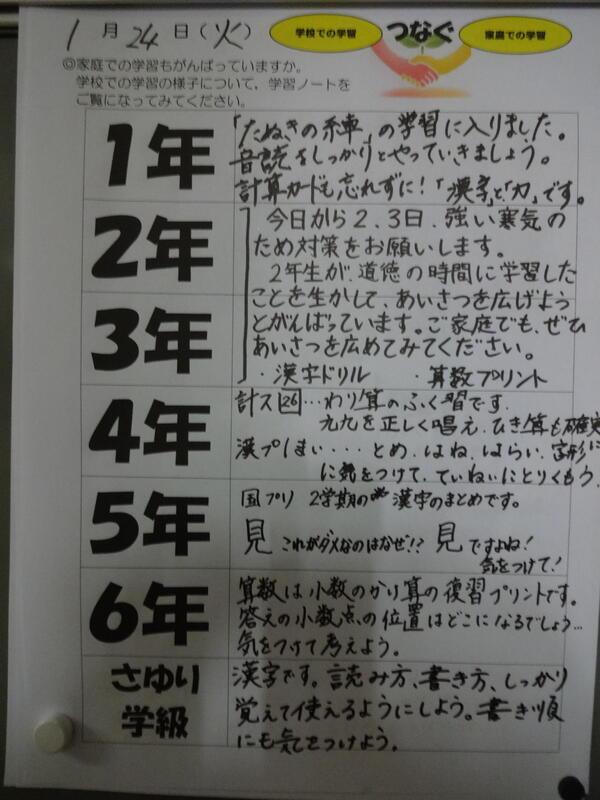 1月24日(火)
学校での学習 つなぐ 家庭での学習
◎家庭での学習もがんばっていますか。
学校での学習の様子について、学習ノートを
ご覧になってみてください。
1年
「たぬきの糸車」の学習に入りました。
音読をしっかりとやっていきましょう。
計算カードも忘れずに!「漢字」と「力」です。
2年
3年
今日から2.3日、強い寒気の
ため対策をお願いします。
2年生が、道徳の時間に学習した
ことを生かして、あいさつを広げよう
とがんばっています。ご家庭でも、ぜひ
あいさつを広めてみてください。
・漢字ドリル ・算数プリント
4年
計ス26…わり算のふく習です。
九九を正しく唱え、ひき算も確実
漢プ1まい・・・とめ、はね、はらい、字形に
に気をつけて、ていねいにとりくもう。
5年
国プリ 2学期の 漢字のまとめです。
見 これがダメなのはなぜ!? 見 ですよね!
気をつけて!
6年
算数は小数のかけ算の復習プリントです。
答えの小数点の位置はどこになるでしょう…
気をつけて考えよう。
さゆり
学級
漢字です。読み方、書き方、しっかり
覚えて使えるようにしよう。書き順
にも気をつけよう。